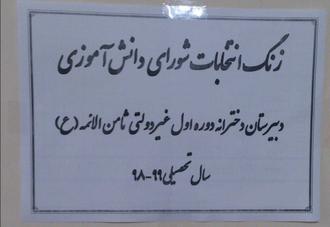 زنگ انتخابات شورای دانش آموزی
دبیرستان دخترانه دوره اول غیردولتی ثامن الائمه (ع)
سال تحصیلی ۹۹-۹۸